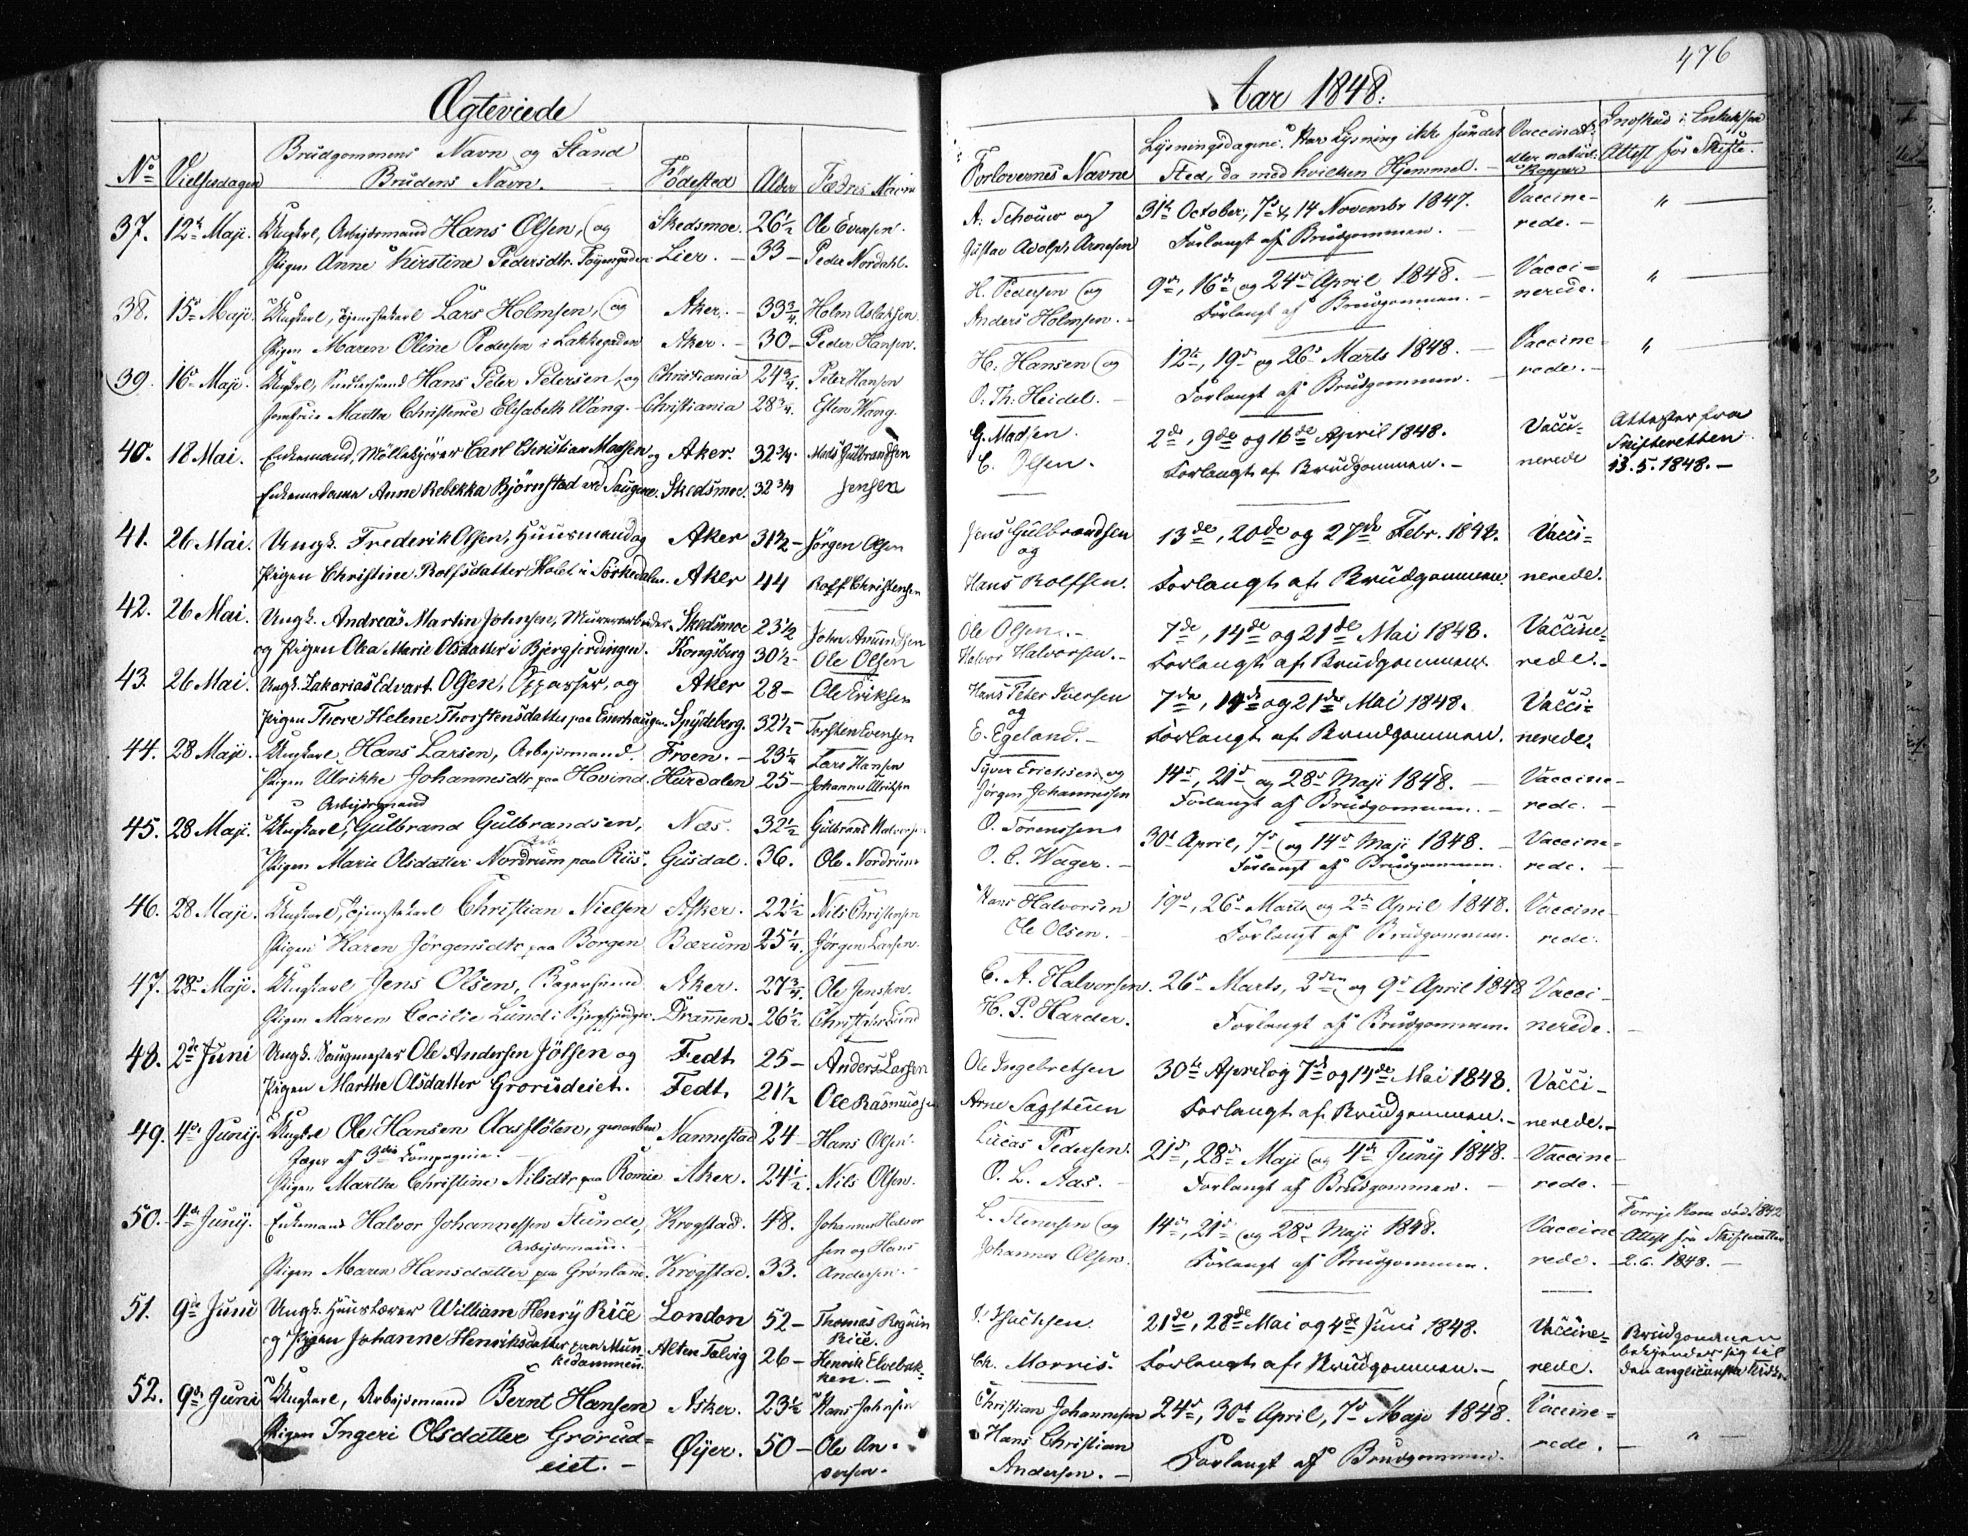 476
Ægteviede
Aar 1848.
No Vielsesdagen Brudgommens Navn og Stand Brudens Navn. Fødested Alder Fædres Navn
Forlovernes Navne Lysningsdagene. Har Lysning ikke fundet Sted, da med hvilken Hjemmel. Vaccinat. eller naturl. Kopper Attest fra Skifte.
37. 12te Maji. Ungkarl, Arbeidsmand Hans Olsen, og Skedsmoe. 26½ Ole Evensen. A. Schouw og 31te October, 7de & 14 Novembr 1847. Vaccine- "
Pigen Anne Kirstine Pedersdtr. Tøyengaden Lier. 33 Peder Nordahl. Gustav Adolph Arnesen Forlangt af Brudgommen. rede.
38. 15de Maji. Ungkarl, Tjenestekarl Lars Holmsen, og Aker. 33¾ Holm Aslaksen. H. Pedersen og 9de, 16de og 24de April 1848. Vacci- "
Pigen Maren Oline Pedersen i Lakkegaden Aker. 30 Peder Hansen. Anders Holmsen. Forlangt af Brudgommen. nerede.
39. 16de Maji. Ungkarl, Hans Peter Petersen, og Christiania 24¾ Peter Hansen H. Hansen og 12te, 19de og 26de Marts 1848. Vaccine- "
Jomfrue Martha Christence Elisabeth Wang. Christiania 28¾ Esten Wang. O. Th. Heidel. Forlangt af Brudgommen. rede.
40. 18 Mai. Enkemand, Møllekjører Carl Christian Madsen og Aker. 32¾ Mads Gulbrandsen G. Madsen. 2de, 9de og 16de April 1848. Vacci- Attester fra
Enkemadame Anne Rebekka Bjørnstad ved Saugene. Skedsmoe. 32¾ Jensen C. Olsen. Forlangt af Brudgommen. nerede Skifteretten 13.5.1848.
41. 26 Mai. Ungk. Frederik Olsen, Huusmand og Aker 31½ Jørgen Olsen Jens Gulbrandsen og 13de, 20de og 27de Febr. 1848. Vacci-
Pigen Christine Rolfsdatter Holst i Sørkedalen. Aker 44 Rolf Christensen Hans Rolfsen. Forlangt af Brudgommen. nerede.
42. 26 Mai. Ungk. Andreas Martin Johnsen, Murerarbeider Skedsmoe 23½ John Amundsen Ole Olsen. 7de, 14de og 21de Mai 1848. Vaccine-
og Pigen Olea Marie Olsdatter i Bjergjerdingen. Kongsberg 30½ Ole Olsen Halvor Halvorsen. Forlangt af Brudgommen. rede.
43. 26 Mai. Ungk. Zakarias Edvart Olsen, Oppasser, og Aker 28 Ole Eriksen Hans Peter Iversen og 7de, 14de og 21de Mai 1848. Vacci-
Pigen Thore Helene Thorstensdatter paa Enerhaugen. Spydeberg. 32½ Torsten Evensen E. Egeland. Forlangt af Brudgommen. nerede.
44. 28 Maji. Ungkarl Hans Larsen, Arbejdsmand. Froen. 23¼ Lars Hansen Syver Erichsen og 14de, 21de og 28de Maji 1848. Vaccine-
Pigen Ulrikke Johannesdtr paa Hovind Hurdalen 25 Johannes Ulriksen Jørgen Johannessen Forlangt af Brudgommen. rede.
Arbejdsmand
45. 28 Maji. Ungkarl, Gulbrand Gulbrandsen, Næs. 32½ Gulbrand Halvorsen O. Sørenssen 30te April, 7de og 14de Maji 1848. Vaccine-
Pigen Marie Olsdatter Nordrum paa Riis. Gusdal. 36. Ole Nordrum O. C. Wager. Forlangt af Brudgommen. rede.
46. 28 Maji. Ungkarl, Tjenstekarl Christian Nielsen Asker. 22½ Nils Christensen Hans Halvorsen 19de, 26de Marts og 2den April 1848. Vaccine-
Pigen Karen Jörgensdtr paa Borgen Bærum 25¼ Jørgen Larsen. Ole Olsen. Forlangt af Brudgommen. rede.
47. 28de Maji. Ungkarl Jens Olsen, Bagersvend Aker. 27¾ Ole Jensen. C. A. Halvorsen. 26de Marts, 2den og 9de April 1848 Vacci-
Pigen Maren Cecilie Lund i Drammen. 26½ Christian Lund H. P. Harder. Forlangt af Brudgommen. nerede.
48. 2de Juni Ungk. Saugmester Ole Andersen Jölsen og Fedt. 25 Anders Larsen Ole Ingebretsen 30te April og 7de og 14de Mai 1848. Vacci-
Pigen Marthe Olsdatter Grorudeiet. Fedt. 21½ Ole Rasmussen Arne Sagstuen Forlangt af Brudgommen. nerede.
49. 4de Junij. Ungkarl Ole Hansen Aasfløten, gevorben Nannestad 24 Hans Olsen. Lucas Pedersen. 21de, 28de Maji og 4de Junij 1848. Vaccine-
Jæger af 3die Compagnie.
Pigen Marthe Christine Nilsdtr paa Romie Aker. 24½ Nils Olsen. O. L. Aas. Forlangt af Brudgommen. rede.
50. 4de Junij. Enkemand Halvor Johannessen Stunde, Krogstad. 48. Johannes Halvorsen og Hans L. Stenersen og 14de, 21de og 28de Maji 1848. Vaccine Forrige Kone död 1842
Arbejdsmand. Attest fra Skifteretten
Pigen Maren Hansdatter paa Grønland. Krogstad. 33. Andersen. Johannes Olsen. Forlangt af Brudgommen. rede. 2.6.1848.
51. 9de Juni Ungk. Huuslærer William Henry Rice London 52 Thomas Rice. 21de, 28de Mai og 4de Juni 1848. Vaccine- Brudgommen
og Pigen Johanne Henriksdatter paa Munkedammen. Alten Talvig 26 Henrik Elvebakken. Ch. Morris. Forlangt af Brudgommen. rede. bekjender sig til den anglicanske Kirke.
52. 9de Juni Ungkarl, Arbejdsmand Bernt Hansen Asker. 23½ Hans Johnsen Christian Johannesen 24de, 30te April, 7de Maji 1848. Vaccine-
Pigen Ingeri Olsdatter Grorudeiet. Øyer. 50 Ole Andersen. Hans Christian Andersen. Forlangt af Brudgommen. rede. "